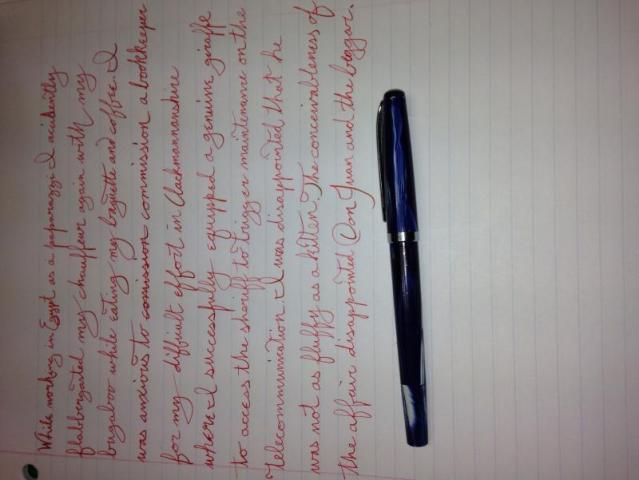 While working in Egypt as a paparazzi I accidently
flabbergasted my chauffeur again with my
bugaboo while eating my baguette and coffee. I
was anxious to comission commission a bookkeeper
for my difficult effort in Clackmannanshire
where I successfully equipped a genuine giraffe
to access the sheriff to trigger maintenance on the
telecommunication. I was disappointed that he
was not as fluffy as a kitten. The conceivableness of
the affair disappointed Don Juan and the beggar.